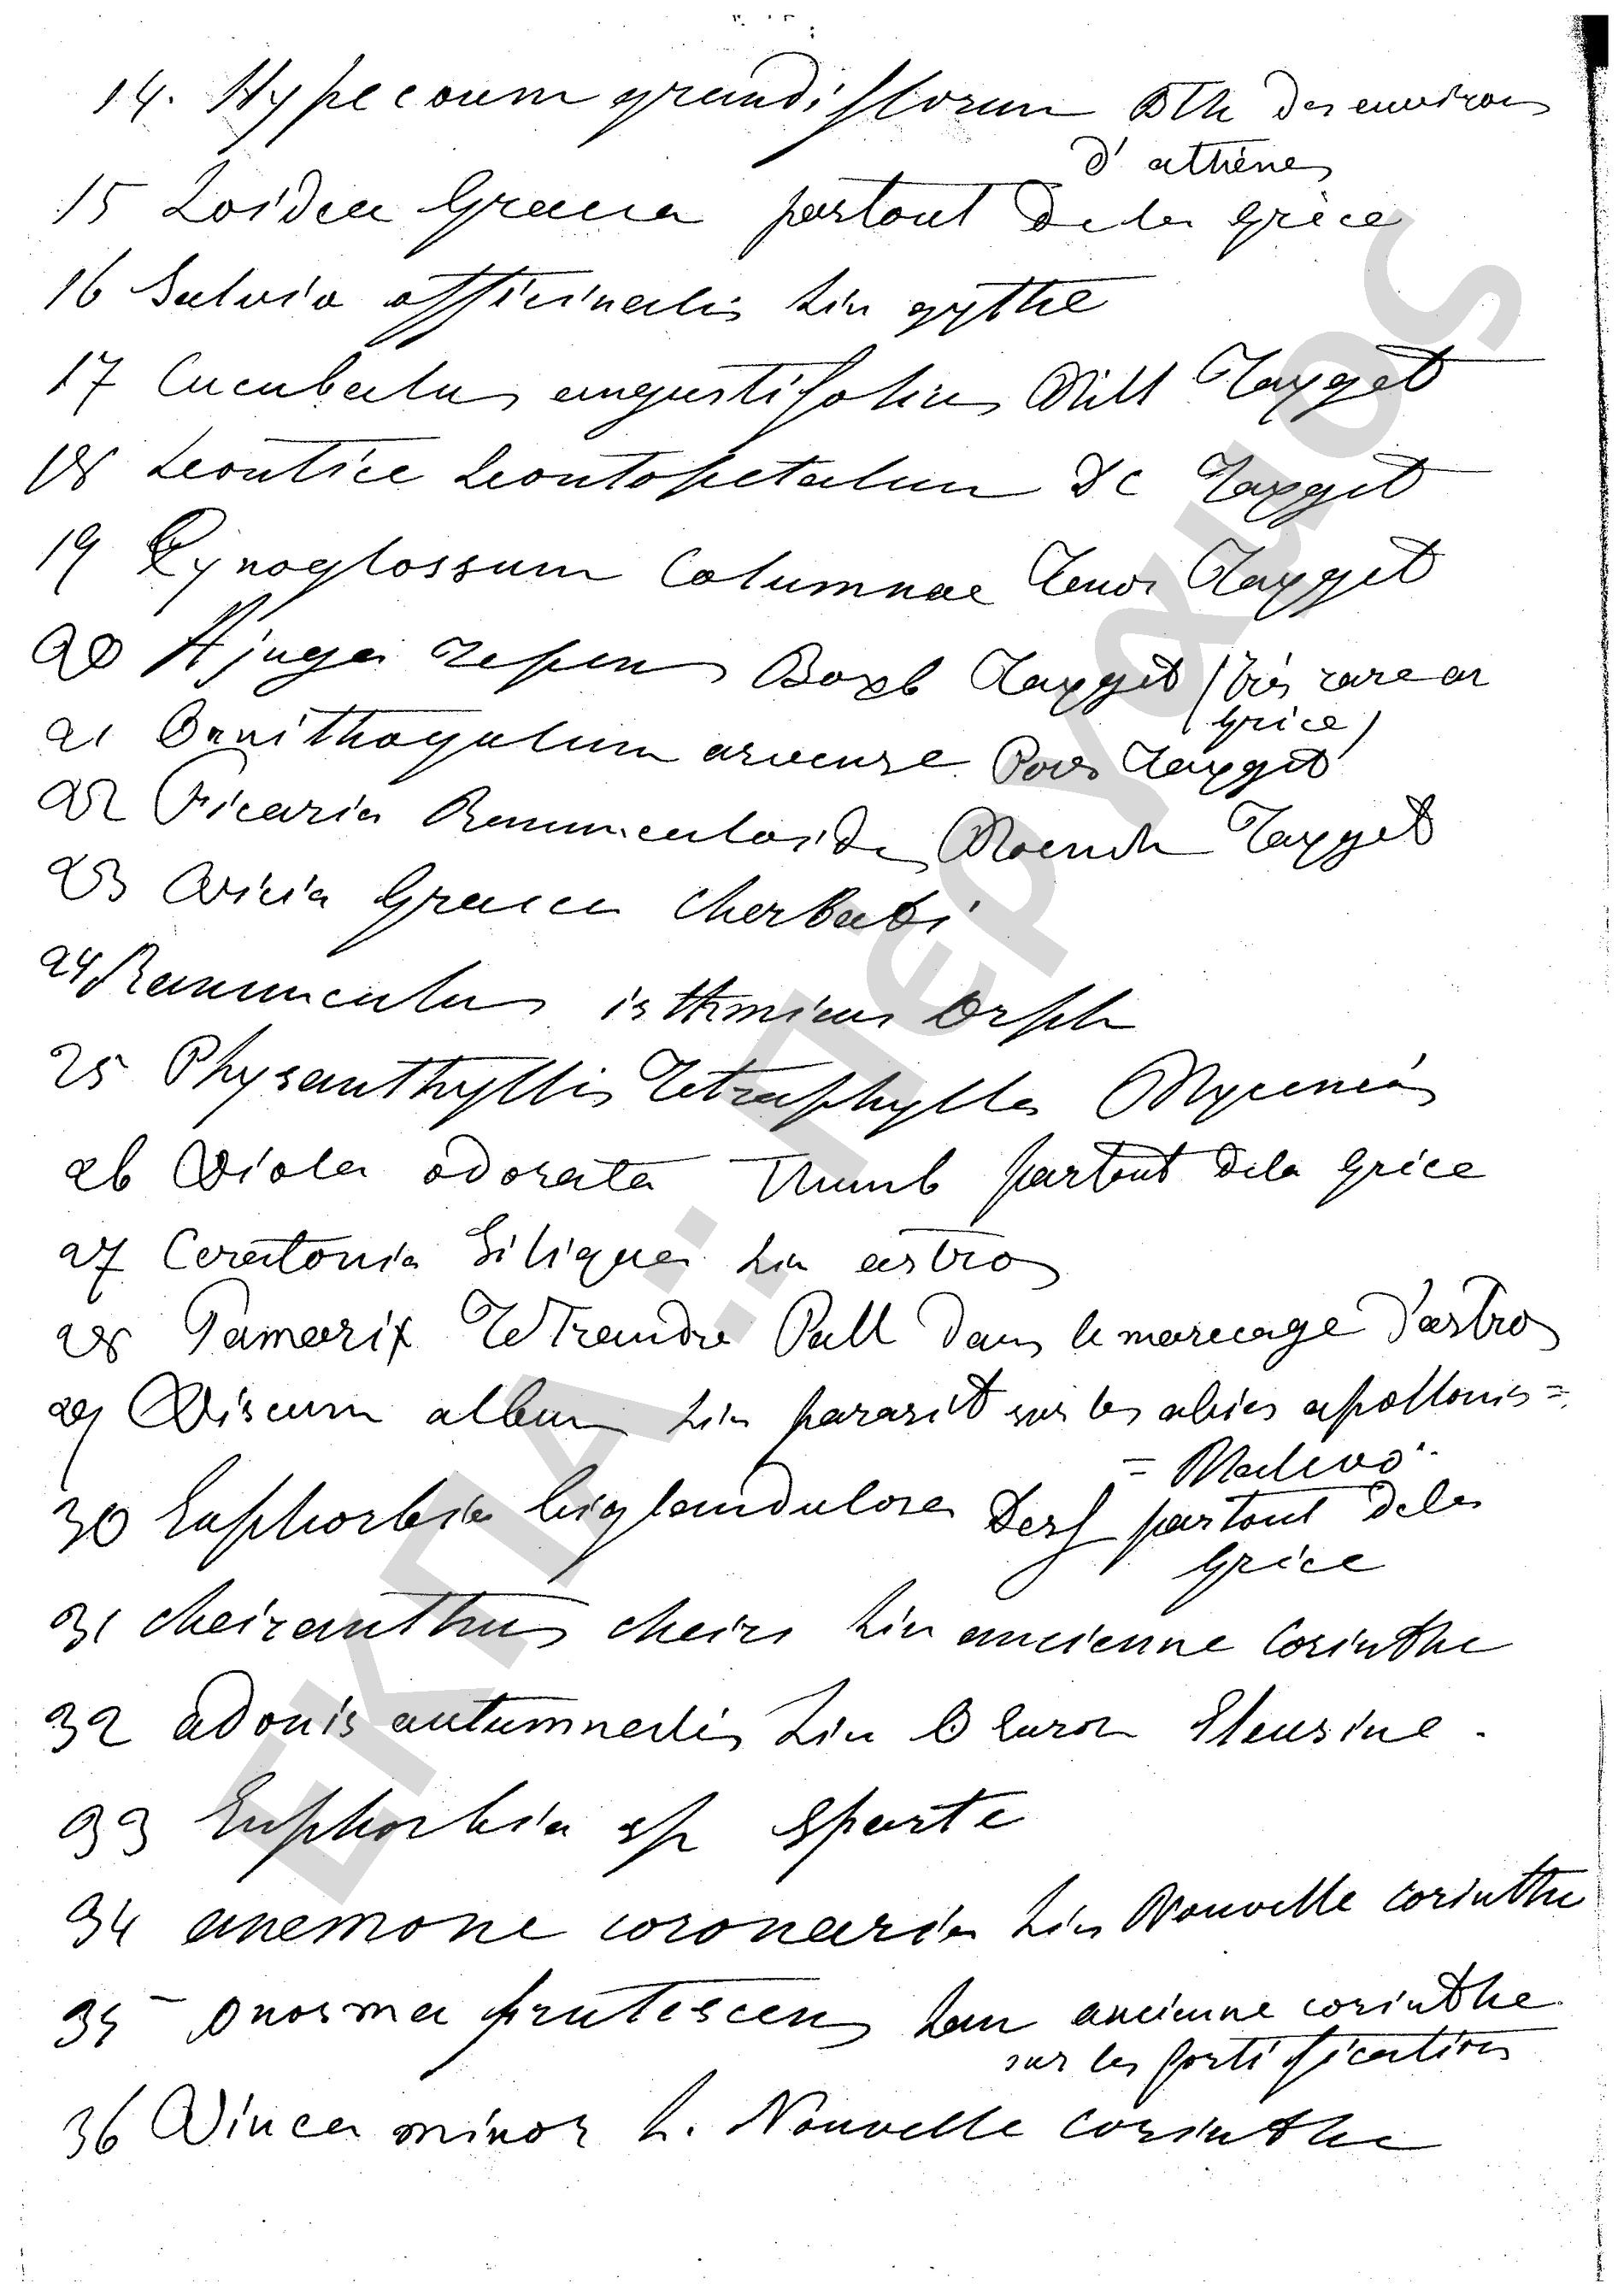 14. Hypecoum grandiflorum Bth des environs
d'athènes
15 Loidia Graeca partout de la Grèce
16 Salvia officinalis Lin gythe
17 Cucubalus angustifolius Mill Tayget
18 Leontice Leontopetalum DC Tayget
19 Cynoglossum Columnae Tenor Tayget
20 Ajuga repens Roxb Tayget (très rare en
Grèce)
21 Ornithogalum arvense Pers Tayget
22 Ficaria Rannunculoides Moench Tayget
23 Vicia Graeca Cherbati
24 Rannunculus isthmicus Orph
25 Physanthyllis Tetraphylla Mycenès
26 Viola odorata Thunb partout de la Grèce
27 Ceratonia Siliqua Lin astros
28 Tamarix Tetrandra Pall dans le marecage d'astros
29 Viscum album Lin parasit sur les abies apollonis =
= Malevo
30 Euphorbia biglandulosa Desf partout de la
Grèce
31 Cheiranthus cheiri Lin ancienne Corinthe
32 adonis autumnalis Lin Eleusine.
33 Euphorbia sp Sparte
34 anemone coronaria Lin Nouvelle corinthe
35 - onosma frutescens Lam ancienne corinthe
sur les fortifications
36 Vinca minor L. Nouvelle Corinthe
ΕΚΠΑ: Πέργαμος